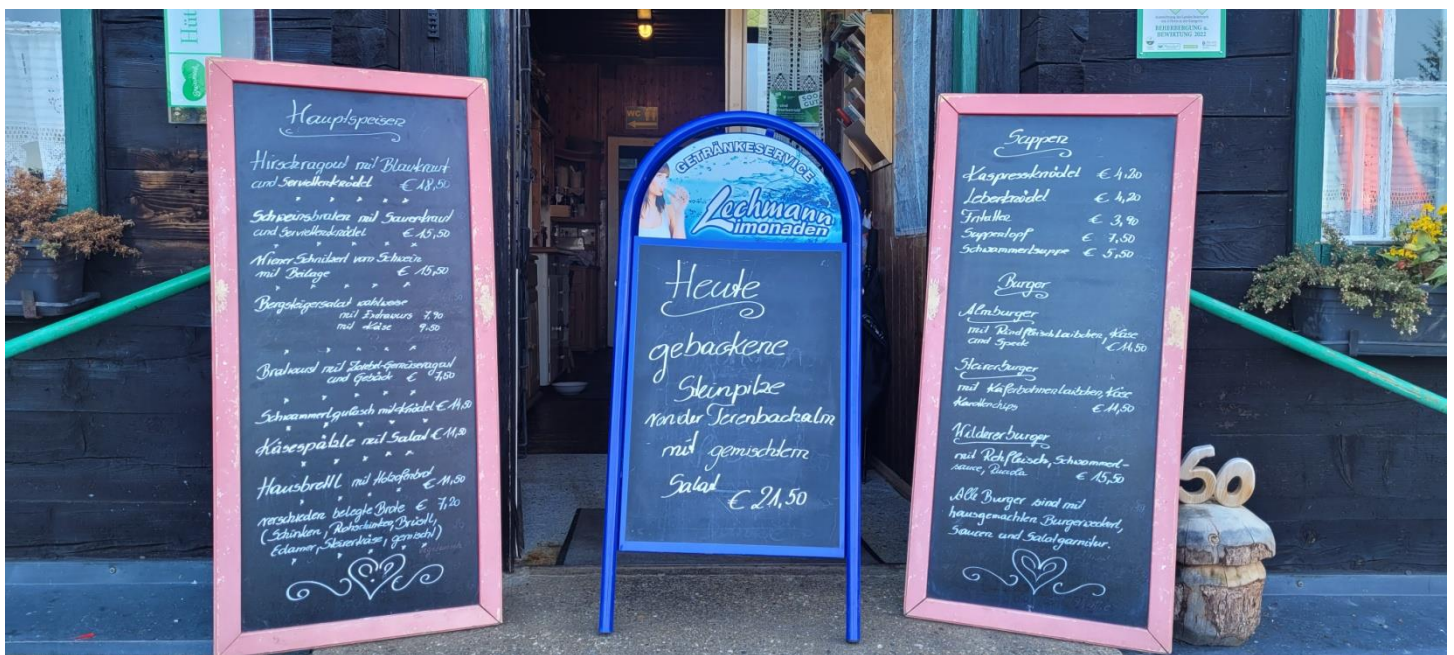 Hüt
Hauptspeisen
Hirschragout mit Blaukraut
und Serviettenknödel € 18,50
Schweinsbraten mit Sauerkraut
und Serviettenknödel € 15,50
Wiener Schnitzerl vom Schwein
mit Beilage € 15,50
Bergsteigersalat wahlweise
mit Extrawurs 7,90
mit Käse 9,50
Bratwurst mit Zwiebel-Gemüseragout
und Gebäck € 7,50
Schwammerlgulasch mit Knödel € 14,50
Käsespätzle mit Salat € 11,50
Hausbrettl mit Holzofenbrot
€ 11,50
verschieden belegte Brote € 7,20
(Schinken, Rohschinken, Brüstl,
Edamer, Steirerkäse, gemischt)
WC
GETRÄNKESERVICE
Lechmann
Limonaden
Heute
gebackene
Steinpilze
von der Terenbachalm
mit gemischtem
Salat
€ 21,50
BEHERBERGUNG &
BEWIRTUNG 2022
Suppen
Kaspressknödel € 4,20
Leberknödel € 4,20
Fritatten € 3,90
Suppentopf € 7,50
Schwammerlsuppe € 5,50
Burger
Almburger
mit Rindfleischlaibchen, Käse
und Speck € 14,50
Steirerburger
mit Käferbohnenlaibchen, Käse
Karottenchips € 11,50
Wildererburger
mit Rehfleisch, Schwammerl-
sauce, Rucola € 15,50
Alle Burger sind mit
hausgemachten Burgerweckerl,
Saucen und Salatgarnitur.
60